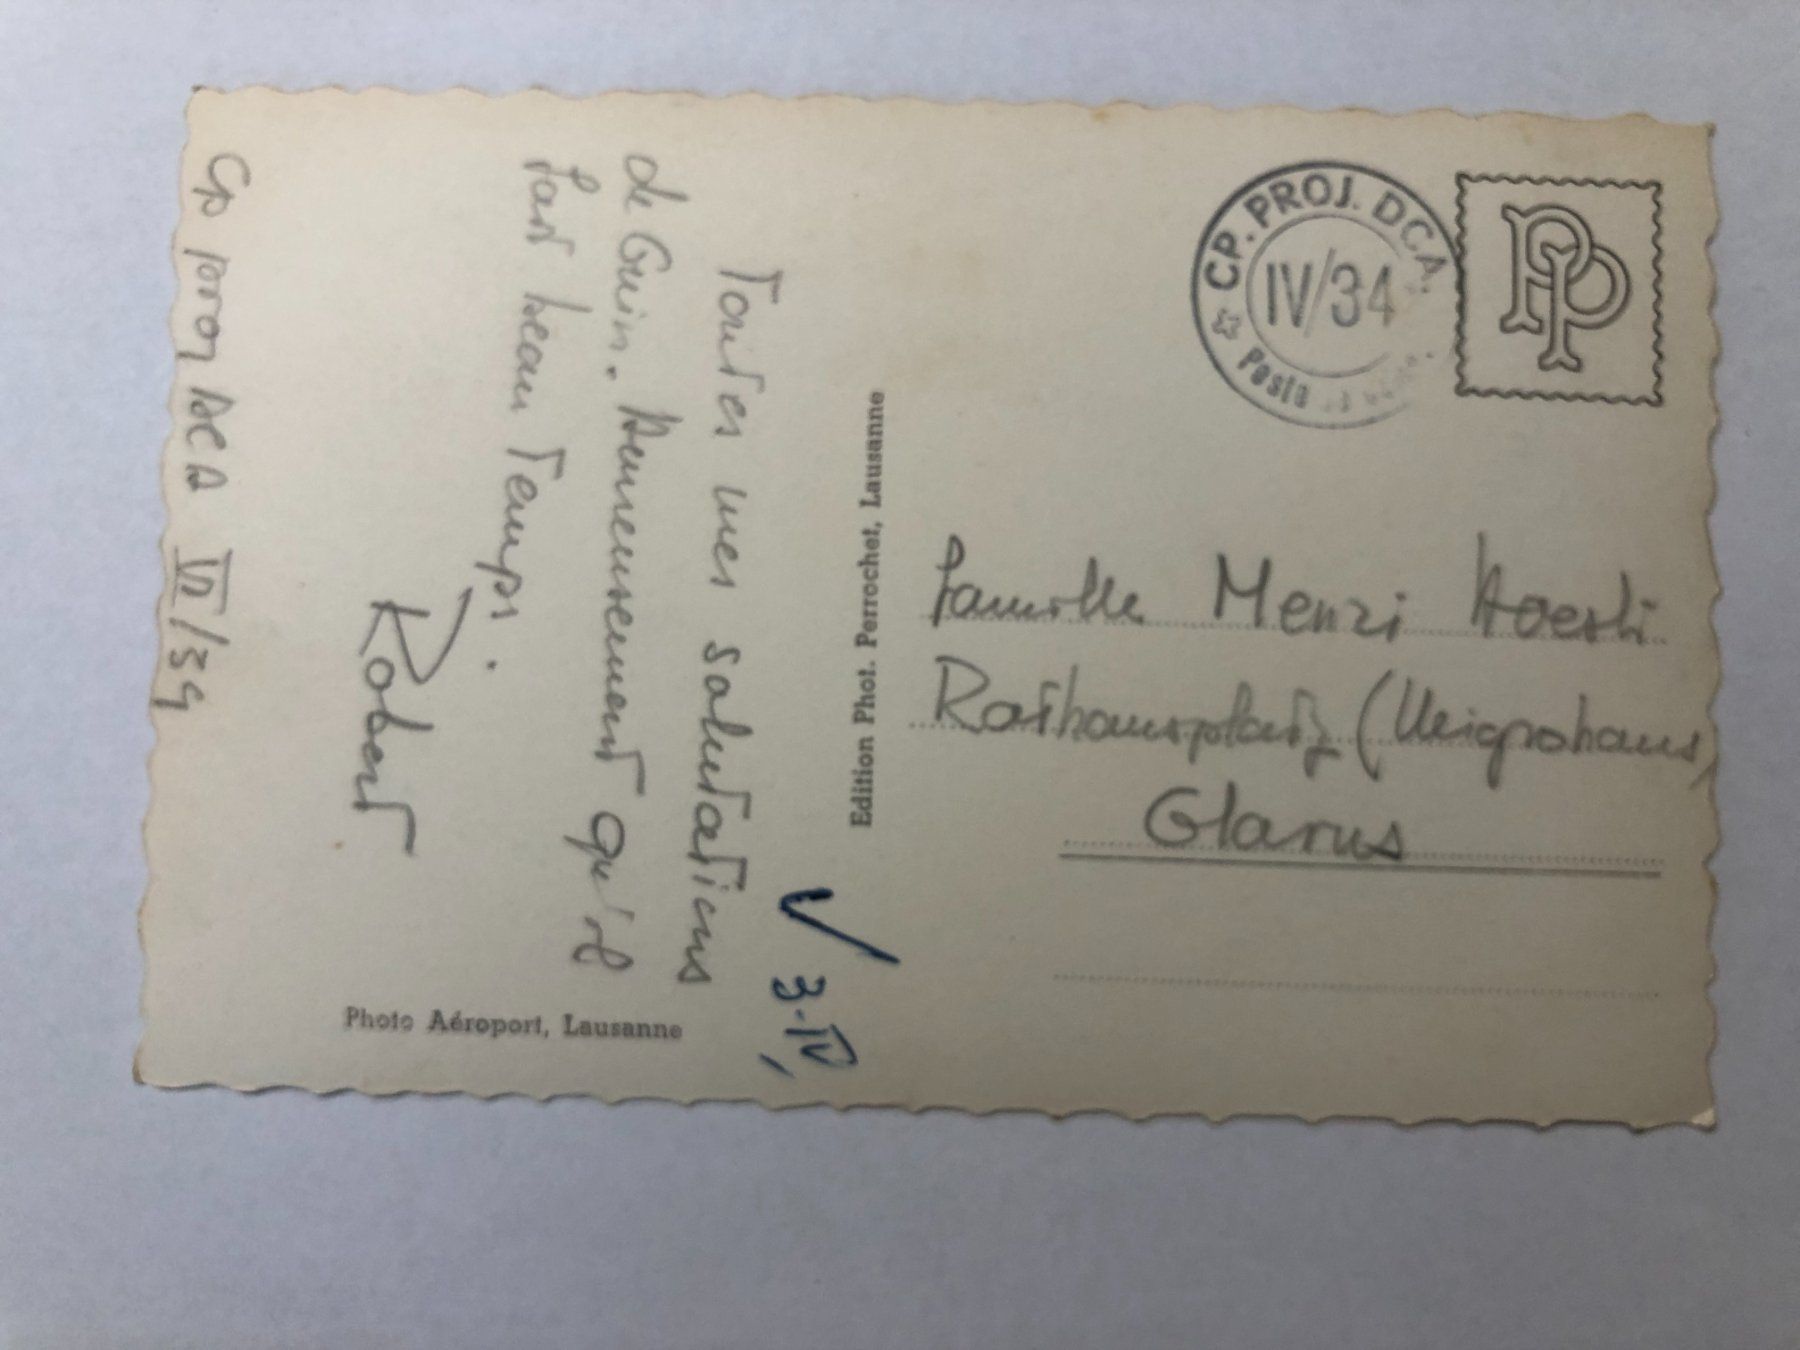 Toutes mes salutations
de Guin. Heureusement qu'il
fait beau temps.
Robert
Cp proj DCA IV/34
V 3.IV,
Edition Phot. Perrochet, Lausanne
Photo Aéroport, Lausanne
CP. PROJ. DCA.
IV/34
PP
Famille Menzi Hoesli
Rathausplatz (Migrohaus)
Glarus